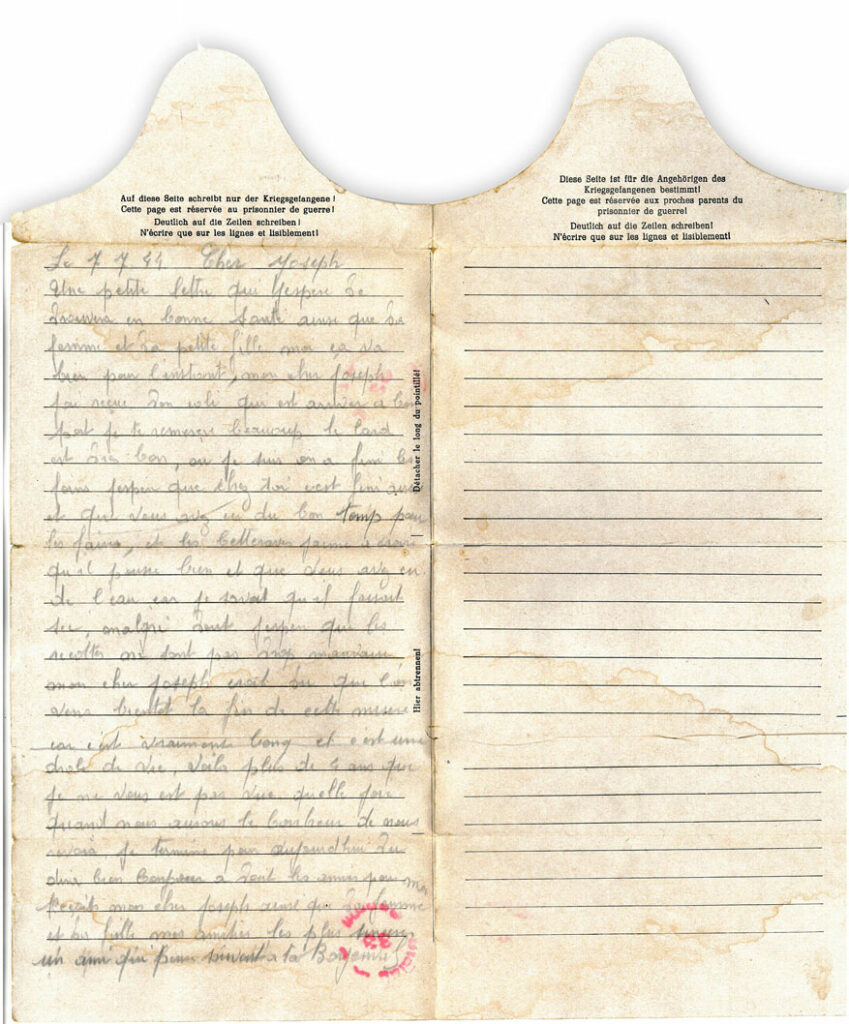 Auf diese Seite schreibt nur der Kriegsgefangene!
Cette page est réservée au prisonnier de guerre!
Deutlich auf die Zeilen schreiben!
N'écrire que sur les lignes et lisiblement!
Le 7 7 44 Cher Joseph
Une petite lettre qui j'espère te
trouvera en bonne santé ainsi que ta
femme et ta petite fille moi ça va
bien pour l'instant, mon cher Joseph
j'ai reçue ton coli qui est arriver a bon
port je te remercie beaucoup le lard
est très bon, ou je suis on a fini les
foins j'esper que chez toi c'est fini
et que vous avez eu du bon temp pour
les foins, et les betteraves
qu'il pousse bien et que vous avez eu
de l'eau car je savait qu'il faisait
sec, malgré tout j'esper que les
recoltes ne sont pas trop mauvaise
mon cher Joseph que l'on
verra bientot la fin de cette misère
car c'est vraiment long et c'est une
drole de vie, voila plus de 4 ans que
je ne vous est pas vue quelle joie
quand nous aurons le bonheur de nous
revoir je termine pour aujourd'hui
bien bonjour a tout les amis pour moi
mon cher Joseph ainsi que ta femme
et ta fille mes amitiés les plus sincères
un ami qui pense souvent a toi
Détacher le long du pointillé!
Hier abtrennen!
Diese Seite ist für die Angehörigen des
Kriegsgefangenen bestimmt!
Cette page est réservée aux proches parents du
prisonnier de guerre!
Deutlich auf die Zeilen schreiben!
N'écrire que sur les lignes et lisiblement!